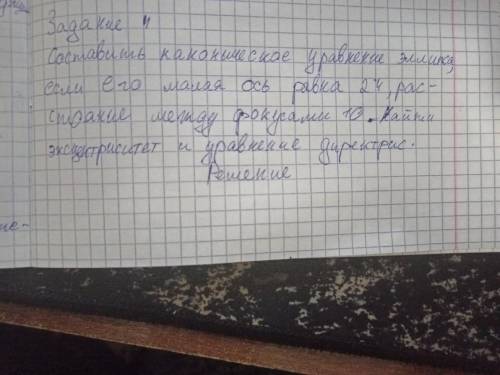 Задание 4
Составить каноническое уравнение эллипса,
если его малая ось равна 24, рас-
стояние между фокусами 10. Найти
эксцентриситет и уравнение директрис.
Решение